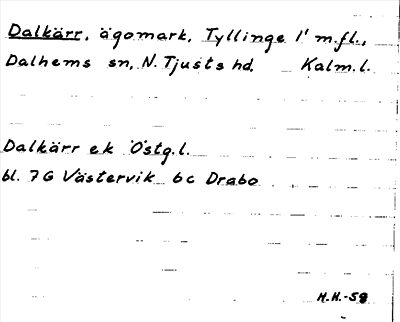 Dalkärr, ägomark, Tyllinge 1¹ m.fl.,
Dalhems sn, N. Tjusts hd. Kalm.l.
Dalkärr ek Östg.l.
bl. 7G Västervik 6c Drabo
H.H.-59